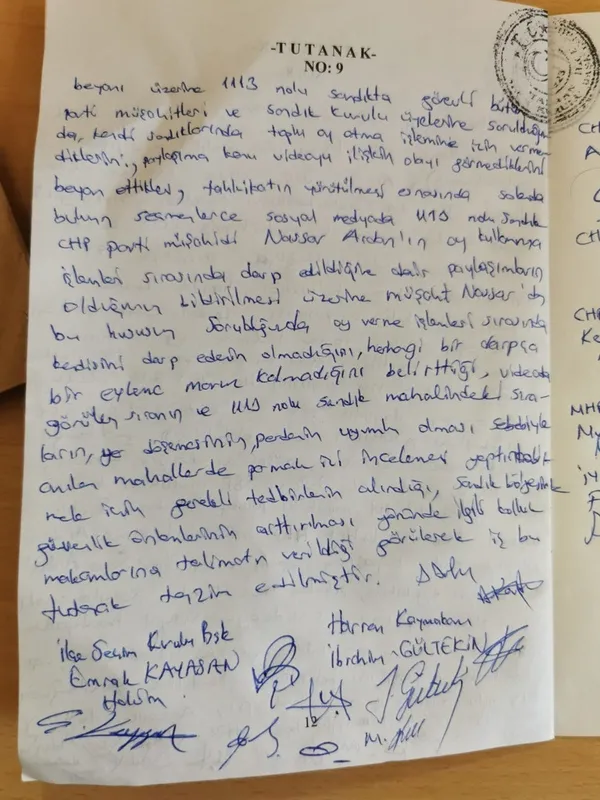 -TUTANAK-
NO: 9
beyanı üzerine 1113 nolu sandıkta görevli bütün
parti müşahitleri ve sandık kurulu üyelerine sorulduğun
da, kendi sandıklarında toplu oy atma işlemine izin verme
diklerini, paylaşıma konu videoya ilişkin olayı görmediklerini
beyan ettikleri, tahkikatın yürütülmesi esnasında salonda
bulunan seçmenlerce sosyal medyada 1113 nolu sandık
CHP parti müşahidi Nassar Ardan'ın oy kullanma
işlemleri sırasında darp edildiğine dair paylaşımların
olduğunun bildirilmesi üzerine müşahit Nassar'da
bu husus sorulduğunda oy verme işlemleri sırasında
kedisini darp edenin olmadığını, herhagi bir darpça
bir eyleme maruz kalmadığını belirttiği, videoda
görülen sıranın ve 1113 nolu sandık mahalindeki sıra-
ların, yer döşemesinin, perdenin uyumlu olması sebebiyle
anılan mahallerde parmak izi incelemesi yaptırılabil
mek için gerekli tedbirlerin alındığı, sandık bölgesinde
güvenlik önlemlerinin arttırılması yönünde ilgili kolluk
makamlarına talimatın verildiği görülerek iş bu
tutanak tanzim edilmiştir.
İlçe Seçim Kurulu Bşk
Emrah KAYASAN
Hakim
Harran Kaymakamı
İbrahim GÜLTEKİN
12
M.
T.C.
CHP
MHP